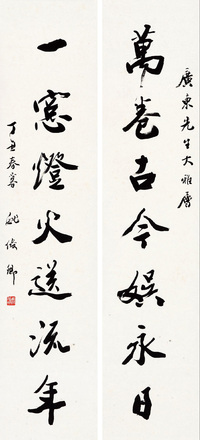 廣東先生大雅屬
萬卷古今娱永日
一窓燈火送流年
丁丑春客
姚俊卿